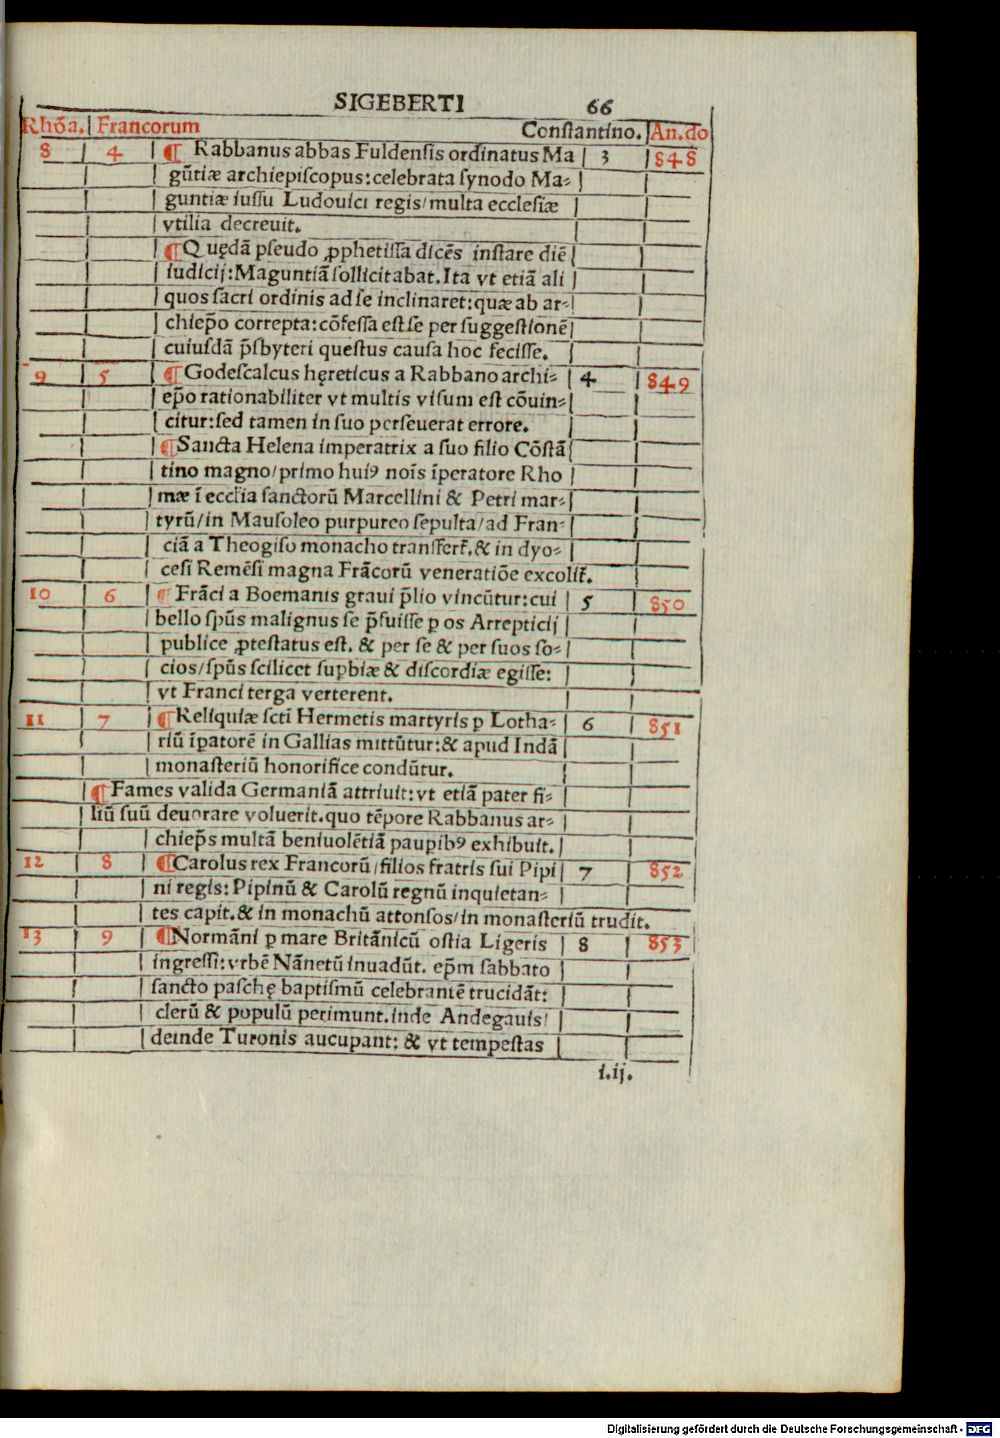 SIGEBERTI 66
Rhōa. Francorum Constantino. An.do
8 4 ¶ Rabbanus abbas Fuldensis ordinatus Ma 3 848
gūtiæ archiepiscopus:celebrata synodo Ma-
guntiæ iussu Ludouici regis/multa ecclesiæ
vtilia decreuit.
¶Quędā pseudo ꝓphetissa dicēs instare diē
iudicij:Maguntiā sollicitabat.Ita vt etiā ali
quos sacri ordinis ad se inclinaret:quæ ab ar-
chiep̄o correpta:cōfessa est se per suggestionē
cuiusdā p̄sbyteri questus causa hoc fecisse.
9 5 ¶Godescalcus hęreticus a Rabbano archi- 4 849
ep̄o rationabiliter vt multis visum est cōuin-
citur:sed tamen in suo perseuerat errore.
¶Sancta Helena imperatrix a suo filio Cōstā
tino magno/primo huiꝰ nōis īperatore Rho
mæ ī ecclīa sanctorū Marcellini & Petri mar-
tyrū/in Mausoleo purpureo sepulta/ad Fran-
ciā a Theogiso monacho transfert̄.& in dyo-
cesi Remēsi magna Frācorū veneratiōe excolit̄.
10 6 ¶ Frāci a Boemanis graui p̄lio vincūtur:cui 5 850
bello sp̄us malignus se p̄fuisse ꝑ os Arrepticij
publice ꝓtestatus est. & per se & per suos so-
cios/sp̄us scilicet suꝑbiæ & discordiæ egisse:
vt Franci terga verterent.
11 7 ¶Reliquiæ sctī Hermetis martyris ꝑ Lotha- 6 851
riū īpatorē in Gallias mittūtur:& apud Indā
monasteriū honorifice condūtur.
¶Fames valida Germaniā attriuit:vt etiā pater fi-
liū suū deuorare voluerit.quo tēpore Rabbanus ar-
chiep̄s multā beniuolētiā paupibꝰ exhibuit.
12 8 ¶Carolus rex Francorū/filios fratris sui Pipi 7 852
ni regis:Pipinū & Carolū regnū inquietan-
tes capit.& in monachū attonsos/in monasteriū trudit.
13 9 ¶Normāni ꝑ mare Britānicū ostia Ligeris 8 853
ingressi:vrbē Nānetū inuadūt. ep̄m sabbato
sancto paschę baptismū celebrantē trucidāt:
clerū & populū perimunt.inde Andegauis/
deinde Turonis aucupant: & vt tempestas
i.ij.
Digitalisierung gefördert durch die Deutsche Forschungsgemeinschaft - DFG